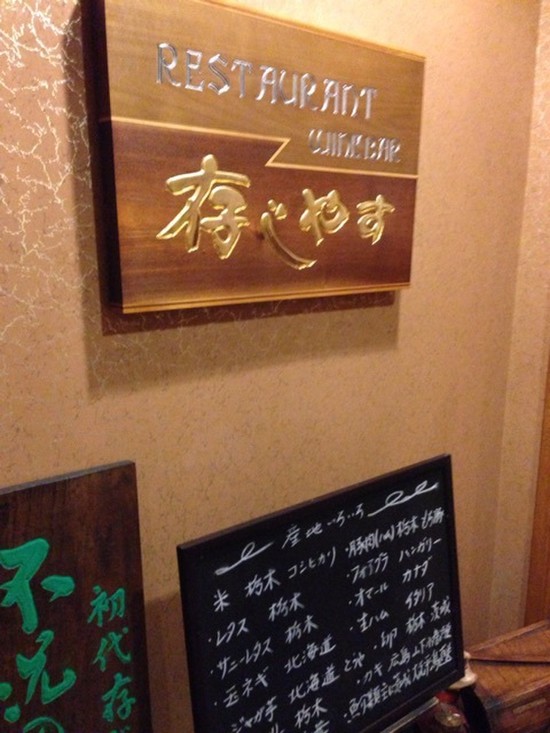 RESTAURANT
WINE BAR
存じやす
不況の
初代存
産地いろいろ
米 栃木 コシヒカリ
・レタス 栃木
・サニーレタス 栃木
・玉ネギ 北海道
ジャガ芋 北海道
栃木
・豚肉 栃木
・フォアグラ ハンガリー
・オマール カナダ
・生ハム イタリア
・卵 栃木 茨城
・カキ 広島